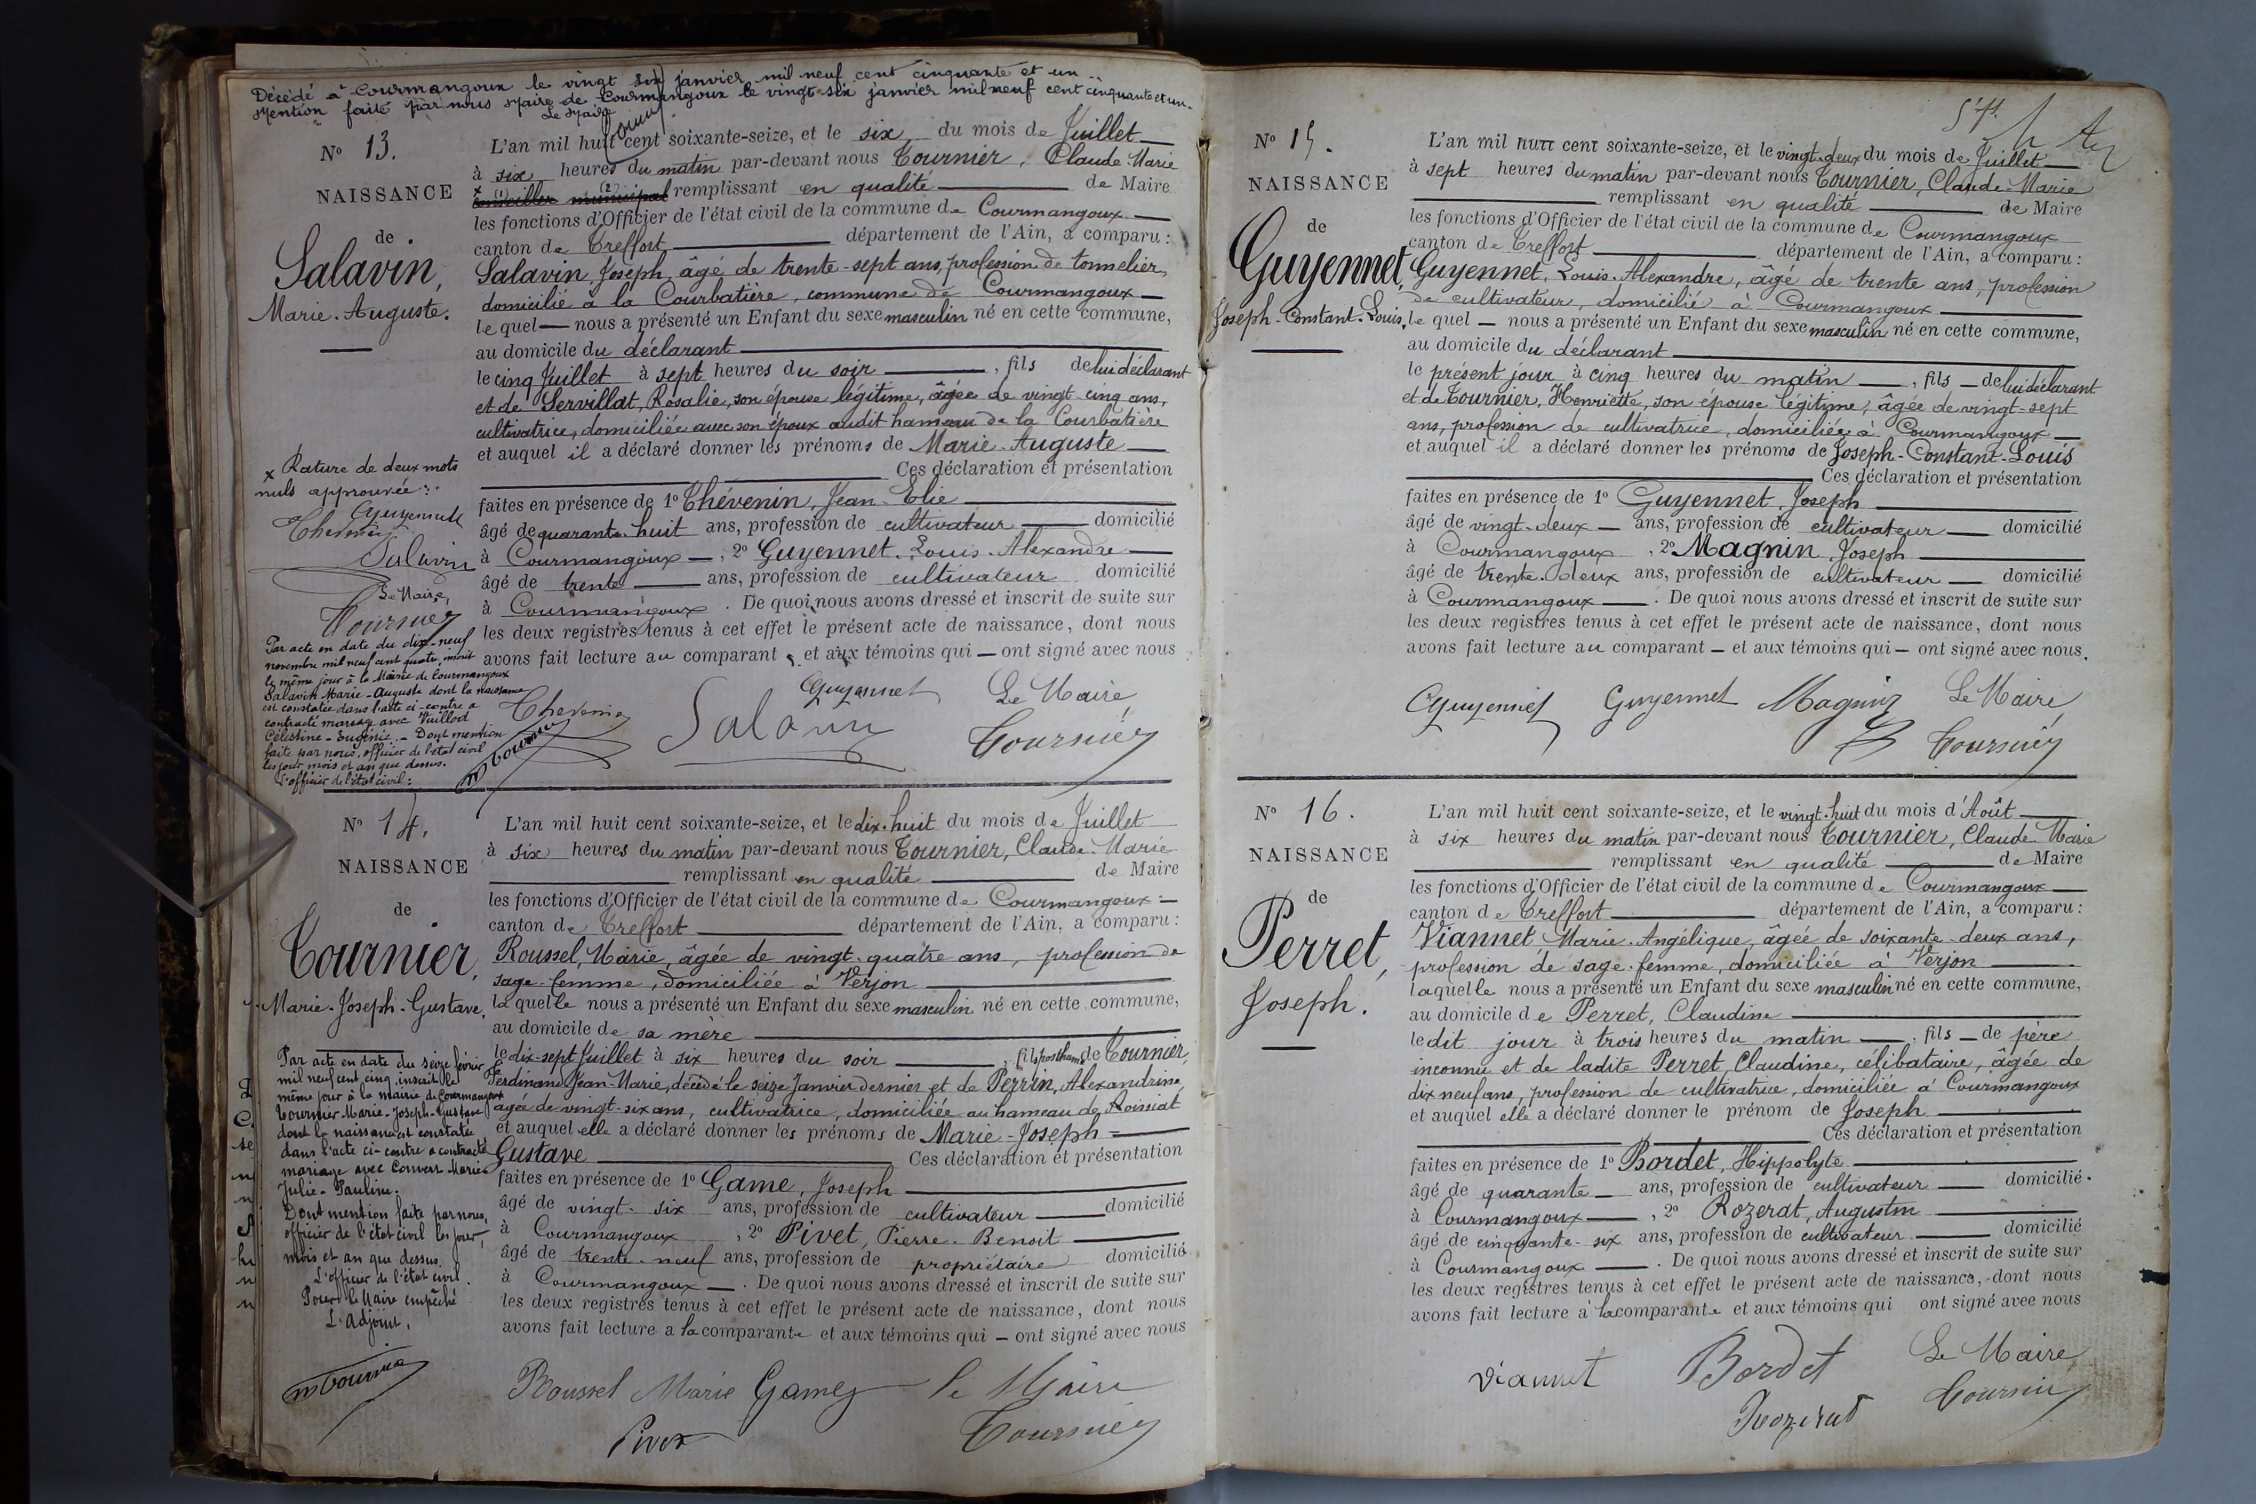 Décédé à Courmangoux le vingt six janvier mil neuf cent cinquante et un
Mention faite par nous Maire de Courmangoux le vingt-six janvier mil neuf cent cinquante et un.
Le Maire
N° 13.
NAISSANCE
de
Salavin,
Marie-Auguste.
L'an mil huit cent soixante-seize, et le six du mois de Juillet
à six heures du matin par-devant nous Tournier, Claude-Marie
conseiller municipal remplissant en qualité de Maire
les fonctions d'Officier de l'état civil de la commune de Courmangoux
canton de Treffort département de l'Ain, a comparu :
Salavin, Joseph, âgé de trente-sept ans, profession de tonnelier,
domicilié à la Courbatière, commune de Courmangoux
lequel nous a présenté un Enfant du sexe masculin né en cette commune,
au domicile du déclarant
le cinq Juillet à sept heures du soir, fils de lui déclarant
et de Servillat, Rosalie, son épouse légitime, âgée de vingt cinq ans,
cultivatrice, domiciliée avec son époux audit hameau de la Courbatière
et auquel il a déclaré donner les prénoms de Marie-Auguste
Ces déclaration et présentation
faites en présence de 1° Thévenin, Jean-Elie
âgé de quarante-huit ans, profession de cultivateur domicilié
à Courmangoux, 2° Guyennet, Louis-Alexandre
âgé de trente ans, profession de cultivateur domicilié
à Courmangoux. De quoi nous avons dressé et inscrit de suite sur
les deux registres tenus à cet effet le présent acte de naissance, dont nous
avons fait lecture au comparant et aux témoins qui ont signé avec nous
x Rature de deux mots
nuls approuvée :
Guyennet
Thevenin
Salavin
Le Maire,
Tournier
Par acte en date du dix-neuf
novembre mil neuf cent quatre, inscrit
le même jour à la Mairie de Courmangoux
Salavin Marie-Auguste dont la naissance
est constatée dans l'acte ci-contre a
contracté mariage avec Vuillod
Célestine-Eugénie. - Dont mention
faite par nous, officier de l'état civil
les jour, mois et an que dessus.
L'officier de l'état civil :
Thevenin Salavin Guyennet Le Maire,
Tournier
N° 14.
NAISSANCE
de
Tournier,
Marie-Joseph-Gustave.
L'an mil huit cent soixante-seize, et le dix-huit du mois de Juillet
à six heures du matin par-devant nous Tournier, Claude-Marie
remplissant en qualité de Maire
les fonctions d'Officier de l'état civil de la commune de Courmangoux
canton de Treffort département de l'Ain, a comparu :
Roussel, Marie, âgée de vingt-quatre ans, profession de
sage-femme, domiciliée à Verjon
laquelle nous a présenté un Enfant du sexe masculin né en cette commune,
au domicile de sa mère
le dix-sept Juillet à six heures du soir, fils posthume de Tournier,
Ferdinand Jean-Marie, décédé le seize Janvier dernier et de Perrin, Alexandrine,
âgée de vingt-six ans, cultivatrice, domiciliée au hameau de Roissiat
et auquel elle a déclaré donner les prénoms de Marie-Joseph-
Gustave Ces déclaration et présentation
faites en présence de 1° Game, Joseph
âgé de vingt-six ans, profession de cultivateur domicilié
à Courmangoux, 2° Pivet, Pierre-Benoit
âgé de trente-neuf ans, profession de propriétaire domicilié
à Courmangoux. De quoi nous avons dressé et inscrit de suite sur
les deux registres tenus à cet effet le présent acte de naissance, dont nous
avons fait lecture a la comparante et aux témoins qui ont signé avec nous
Par acte en date du seize février
mil neuf cent cinq, inscrit le
même jour à la mairie de Courmangoux
Tournier Marie-Joseph-Gustave
dont la naissance est constatée
dans l'acte ci-contre a contracté
mariage avec Convert Marie
Julie-Pauline.
Dont mention faite par nous,
officier de l'état civil les jour,
mois et an que dessus.
L'officier de l'état civil.
Pour le Maire empêché
L'Adjoint,
Roussel Marie Game le Maire
Pivet Tournier
N° 15.
NAISSANCE
de
Guyennet,
Joseph-Constant-Louis.
L'an mil huit cent soixante-seize, et le vingt-deux du mois de Juillet
à sept heures du matin par-devant nous Tournier, Claude-Marie
remplissant en qualité de Maire
les fonctions d'Officier de l'état civil de la commune de Courmangoux
canton de Treffort département de l'Ain, a comparu :
Guyennet, Louis-Alexandre, âgé de trente ans, profession
de cultivateur, domicilié à Courmangoux
lequel nous a présenté un Enfant du sexe masculin né en cette commune,
au domicile du déclarant
le présent jour à cinq heures du matin, fils de lui déclarant
et de Tournier, Henriette, son épouse légitime, âgée de vingt-sept
ans, profession de cultivatrice, domiciliée à Courmangoux
et auquel il a déclaré donner les prénoms de Joseph-Constant-Louis
Ces déclaration et présentation
faites en présence de 1° Guyennet, Joseph
âgé de vingt-deux ans, profession de cultivateur domicilié
à Courmangoux, 2° Magnin, Joseph
âgé de trente-deux ans, profession de cultivateur domicilié
à Courmangoux. De quoi nous avons dressé et inscrit de suite sur
les deux registres tenus à cet effet le présent acte de naissance, dont nous
avons fait lecture au comparant et aux témoins qui ont signé avec nous.
Guyennet Guyennet Magnin Le Maire,
Tournier
N° 16.
NAISSANCE
de
Perret,
Joseph.
L'an mil huit cent soixante-seize, et le vingt-huit du mois d'Août
à six heures du matin par-devant nous Tournier, Claude-Marie
remplissant en qualité de Maire
les fonctions d'Officier de l'état civil de la commune de Courmangoux
canton de Treffort département de l'Ain, a comparu :
Viannet Marie-Angélique, âgée de soixante-deux ans,
profession de sage-femme, domiciliée à Verjon
laquelle nous a présenté un Enfant du sexe masculin né en cette commune,
au domicile de Perret, Claudine
ledit jour à trois heures du matin, fils de père
inconnu et de ladite Perret, Claudine, célibataire, âgée de
dix neuf ans, profession de cultivatrice, domiciliée à Courmangoux
et auquel elle a déclaré donner le prénom de Joseph
Ces déclaration et présentation
faites en présence de 1° Bordet, Hippolyte
âgé de quarante ans, profession de cultivateur domicilié
à Courmangoux, 2° Rozerat, Augustin
âgé de cinquante-six ans, profession de cultivateur domicilié
à Courmangoux. De quoi nous avons dressé et inscrit de suite sur
les deux registres tenus à cet effet le présent acte de naissance, dont nous
avons fait lecture à la comparante et aux témoins qui ont signé avec nous
Viannet Bordet Le Maire
Rozerat Tournier